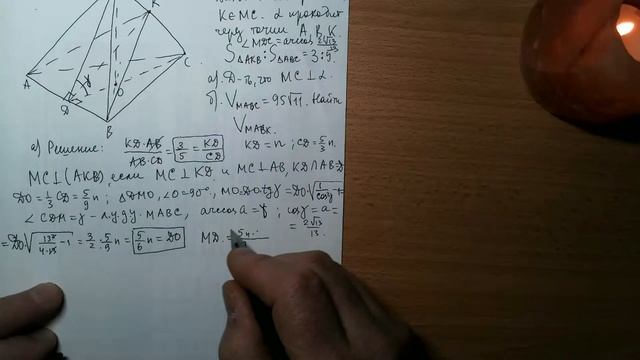 K∈MC. α проходит
через точки A, B, K.
∠MDC = arccos 2√13/13
S△AKB : S△ABC = 3:5.
а). Д-ть, что MC ⊥ α.
б). V MABC = 95√11. Найти
V MABK.
а) Решение: KD·AB/AB·CD = 3/5 = KD/CD
KD = n ; CD = 5/3 n.
MC ⊥ (AKB), если MC ⊥ KD и MC ⊥ AB, KD ∩ AB = D
DO = 1/3 CD = 5/9 n ; △DMO, ∠O = 90°, MO = DO·tgγ = DO√
∠CDM = γ - л.у.д.у. MABC, arccos a = γ ; cosγ = a =
= 2√13/13.
= DO√ -1 = 3/2 · 5/9 n = 5/6 n = DO
MD =
A
D
B
C
K
O
γ